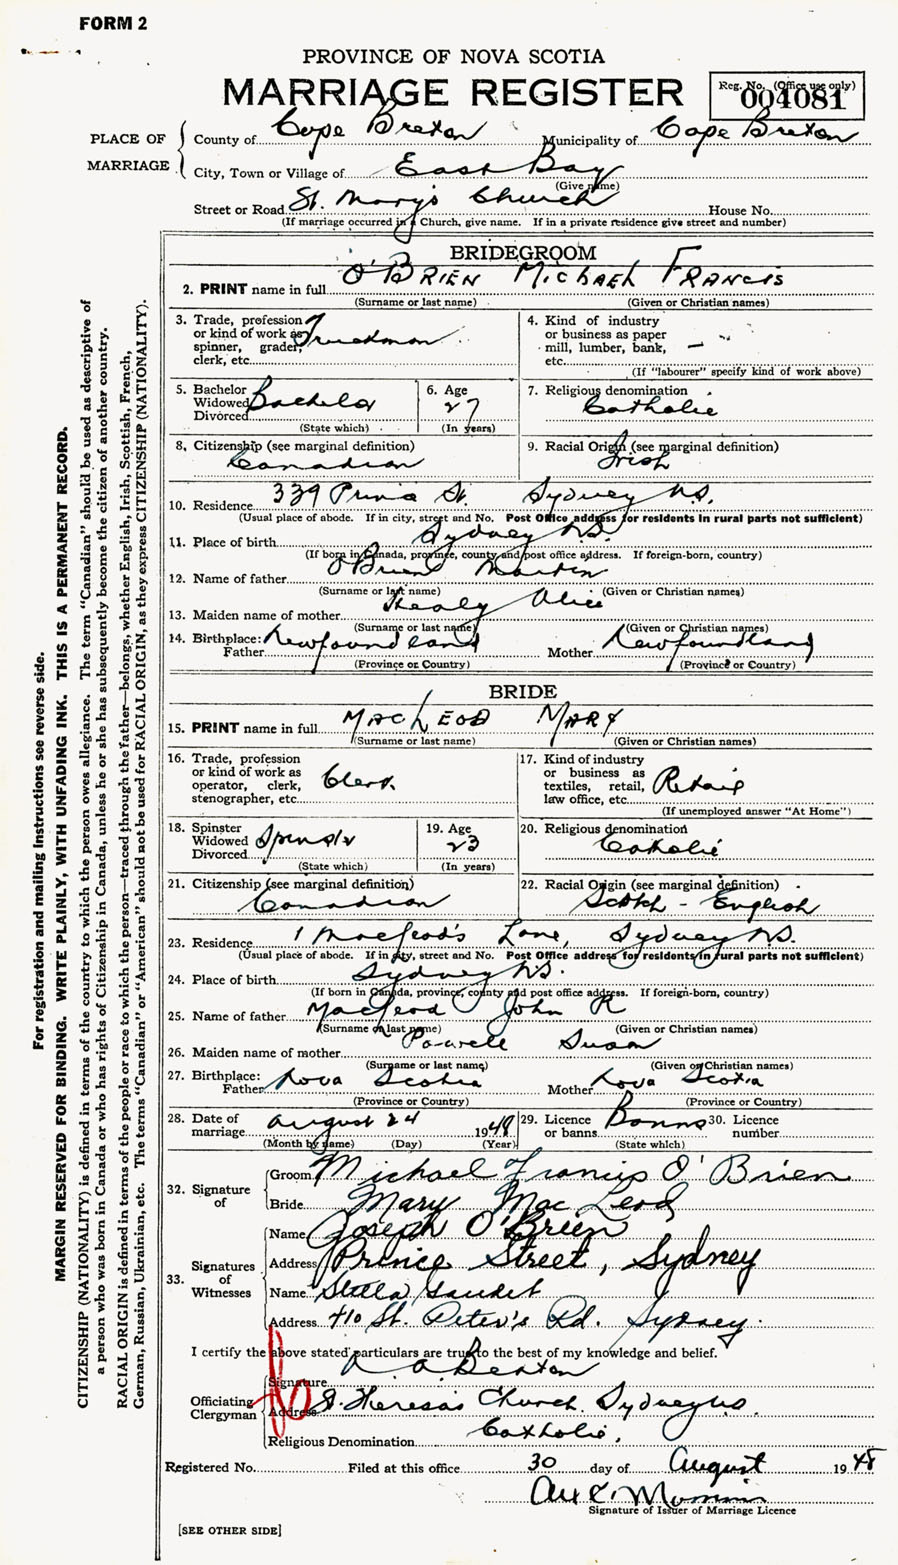 FORM 2
PROVINCE OF NOVA SCOTIA
MARRIAGE REGISTER
Reg. No. (Office use only)
004081
PLACE OF MARRIAGE
County of Cape Breton Municipality of Cape Breton
City, Town or Village of East Bay
(Give name)
Street or Road St. Mary's Church House No.
(If marriage occurred in a Church, give name. If in a private residence give street and number)
BRIDEGROOM
2. PRINT name in full O'BRIEN MICHAEL FRANCIS
(Surname or last name) (Given or Christian names)
3. Trade, profession or kind of work as spinner, grader, clerk, etc. Truckman
4. Kind of industry or business as paper mill, lumber, bank, etc. —
(If "labourer" specify kind of work above)
5. Bachelor Widowed Divorced Bachelor
(State which)
6. Age 27
(In years)
7. Religious denomination Catholic
8. Citizenship (see marginal definition) Canadian
9. Racial Origin (see marginal definition) Irish
10. Residence 339 St. Sydney N.S.
(Usual place of abode. If in city, street and No. Post Office address for residents in rural parts not sufficient)
11. Place of birth Sydney N.S.
(If born in Canada, province, county and post office address. If foreign-born, country)
12. Name of father O'Brien Martin
(Surname or last name) (Given or Christian names)
13. Maiden name of mother Healy Alice
(Surname or last name) (Given or Christian names)
14. Birthplace: Father Newfoundland Mother Newfoundland
(Province or Country) (Province or Country)
BRIDE
15. PRINT name in full MACLEOD MARY
(Surname or last name) (Given or Christian names)
16. Trade, profession or kind of work as operator, clerk, stenographer, etc. Clerk
17. Kind of industry or business as textiles, retail, law office, etc. Retail
(If unemployed answer "At Home")
18. Spinster Widowed Divorced Spinster
(State which)
19. Age 23
(In years)
20. Religious denomination Catholic
21. Citizenship (see marginal definition) Canadian
22. Racial Origin (see marginal definition) Scotch - English
23. Residence 1 MacLeod's Lane, Sydney N.S.
(Usual place of abode. If in city, street and No. Post Office address for residents in rural parts not sufficient)
24. Place of birth Sydney N.S.
(If born in Canada, province, county and post office address. If foreign-born, country)
25. Name of father MacLeod John R
(Surname or last name) (Given or Christian names)
26. Maiden name of mother Powell Susan
(Surname or last name) (Given or Christian names)
27. Birthplace: Father Nova Scotia Mother Nova Scotia
(Province or Country) (Province or Country)
28. Date of marriage August 24 1948
(Month by name) (Day) (Year)
29. Licence or banns Banns
(State which)
30. Licence number
32. Signature of
Groom Michael Francis O'Brien
Bride Mary MacLeod
33. Signatures of Witnesses
Name Joseph O'Brien
Address Prince Street, Sydney
Name Stella Gaudet
Address 410 St. Peter's Rd. Sydney.
I certify the above stated particulars are true to the best of my knowledge and belief.
Officiating Clergyman
Signature Beaton
Address St. Theresa's Church Sydney N.S.
Religious Denomination Catholic.
Registered No. Filed at this office 30 day of August 1948
Signature of Issuer of Marriage Licence
[SEE OTHER SIDE]
For registration and mailing instructions see reverse side.
MARGIN RESERVED FOR BINDING. WRITE PLAINLY, WITH UNFADING INK. THIS IS A PERMANENT RECORD.
CITIZENSHIP (NATIONALITY) is defined in terms of the country to which the person owes allegiance. The term "Canadian" should be used as descriptive of
a person who was born in Canada or who has rights of Citizenship in Canada, unless he or she has subsequently become the citizen of another country.
RACIAL ORIGIN is defined in terms of the people or race to which the person—traced through the father—belongs, whether English, Irish, Scottish, French,
German, Russian, Ukrainian, etc. The terms "Canadian" or "American" should not be used for RACIAL ORIGIN, as they express CITIZENSHIP (NATIONALITY).